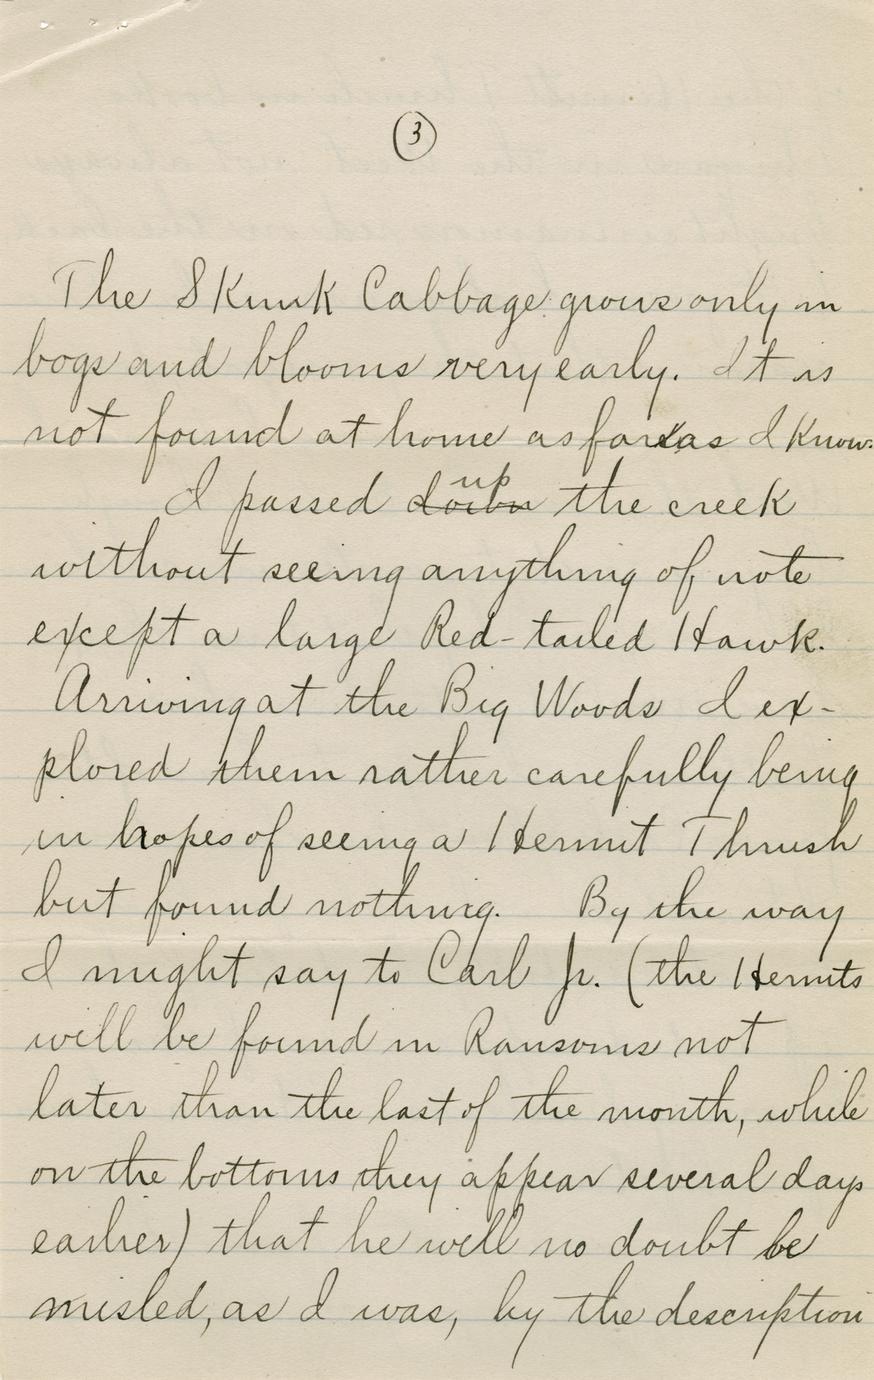 3
The Skunk Cabbage grows only in
bogs and blooms very early. It is
not found at home as far as I know.
up
I passed down the creek
without seeing anything of note
except a large Red-tailed Hawk.
Arriving at the Big Woods I ex-
plored them rather carefully being
in hopes of seeing a Hermit Thrush
but found nothing. By the way
I might say to Carl Jr. (the Hermits
will be found in Ransoms not
later than the last of the month, while
on the bottoms they appear several days
earlier) that he will no doubt be
misled, as I was, by the description